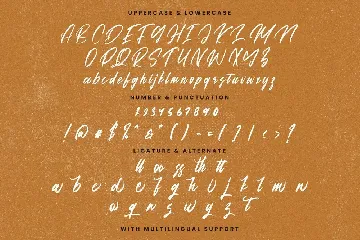 UPPERCASE & LOWERCASE
ABCDEFGHIJKLMN
OPQRSTUVWXYZ
abcdefghijklmnopqrstuvwxyz
NUMBER & PUNCTUATION
1234567890
!@#$%^&*()-=[]/<>?
LIGATURE & ALTERNATE
tt oo ss th tt
a b c d e f g h i j k l m n
o q n s w y z t
WITH MULTILINGUAL SUPPORT